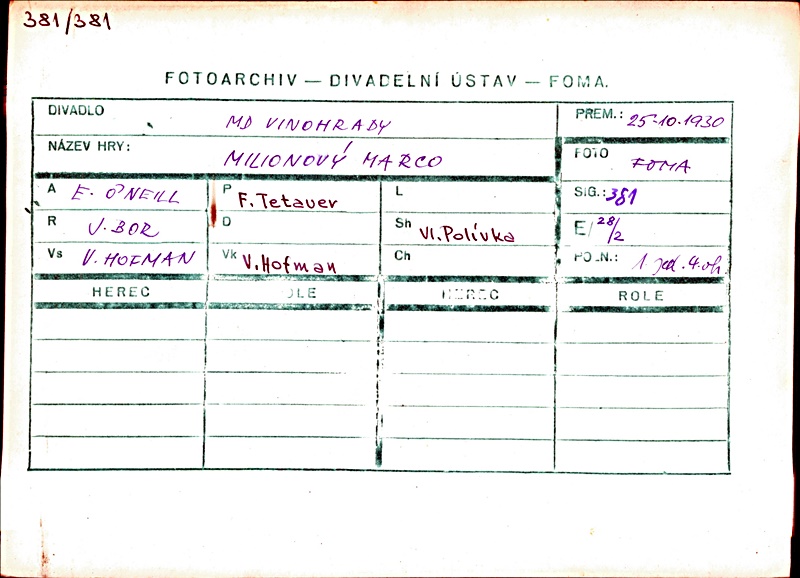 381/381
FOTOARCHIV — DIVADELNÍ ÚSTAV — FOMA.
DIVADLO MD VINOHRADY PREM.: 25.10.1930
NÁZEV HRY: MILIONOVÝ MARCO FOTO FOMA
A E. O'NEILL P F. Tetauer L SIG.: 381
R J. BOR D Sh Vl. Polívka E/ 28/2
Vs V. HOFMAN Vk V. Hofman Ch POZN.: 1 jed. 4. ob.
HEREC ROLE HEREC ROLE